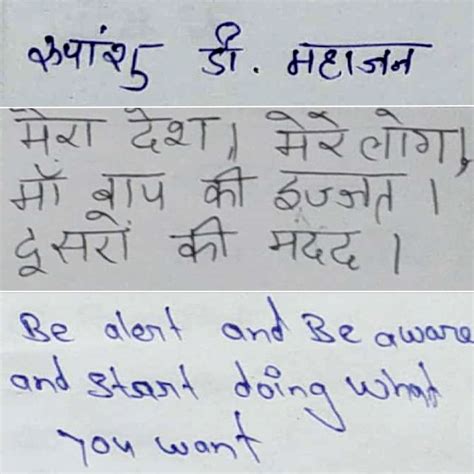 रुपांशु डी. महाजन
मेरा देश, मेरे लोग,
माँ बाप की इज्जत ।
दूसरों की मदद ।
Be alert and Be aware
and start doing what
you want